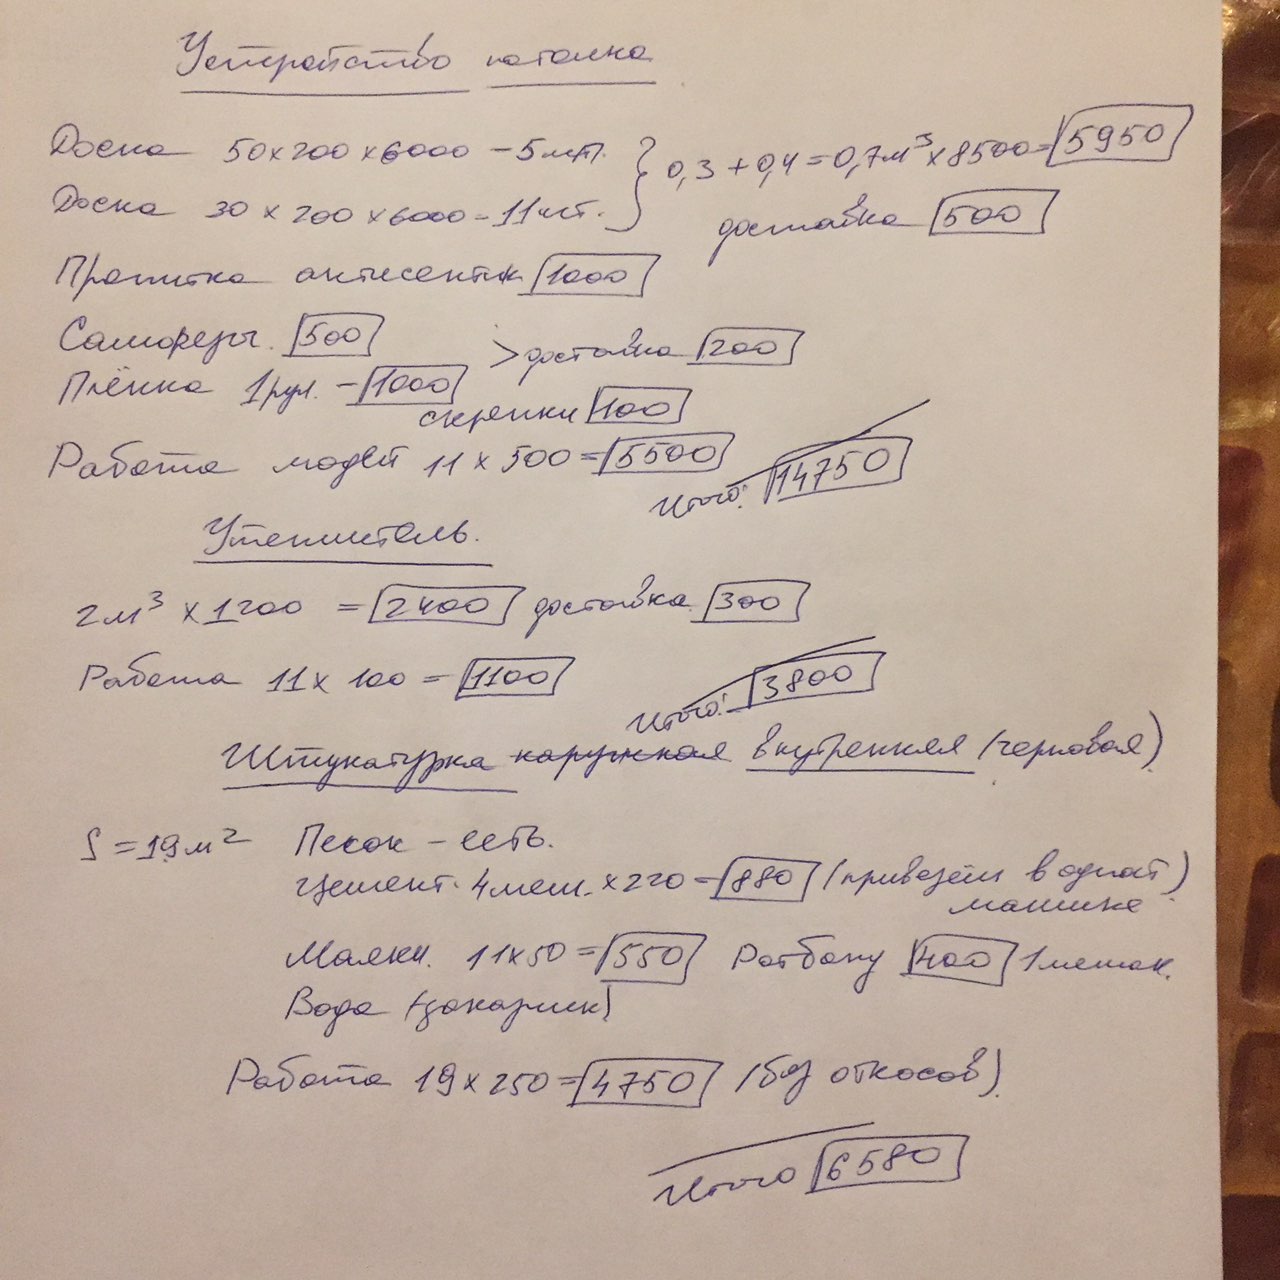 Устройство потолка
Доска 50x200x6000 - 5 шт. } 0,3 + 0,4 = 0,7м³ x 8500 = 5950
Доска 30 x 200 x 6000 - 11 шт. доставка 500
Пропитка антисептик 1000
Саморезы. 500 > доставка 200
Плёнка 1 рул. - 1000
скрепки 100
Работа 11 x 500 = 5500 Итого: 14750
Утеплитель.
2 м³ x 1200 = 2400 доставка 300
Работа 11 x 100 = 1100 Итого: 3800
Штукатурка наружная внутренняя (черновая)
S = 19 м² Песок - есть.
Цемент. 4 меш. x 220 = 880 (привезём в одной
машине)
Маяки. 11x50 = 550 Ротбанд 400 1 мешок.
Вода (заказчик)
Работа 19 x 250 = 4750 (без откосов)
Итого 6580